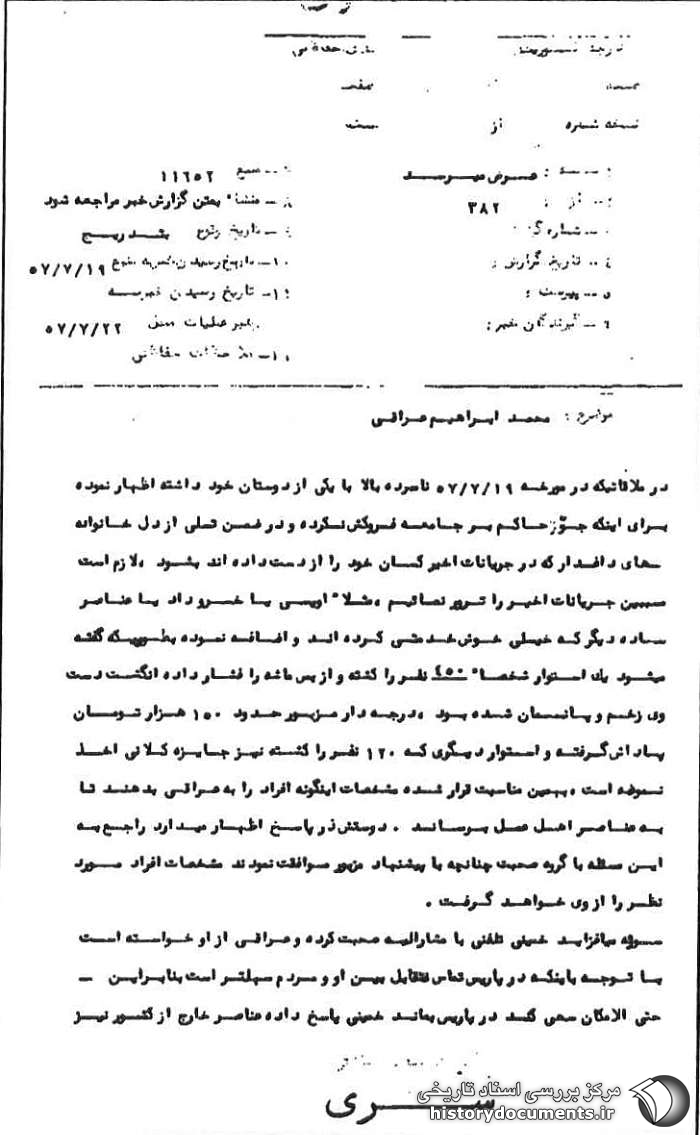 نسخه شماره از
۱ــ به : عرض میرسد
۲ــ از : ۳۸۲
۳ــ شماره
۴ــ تاریخ گزارش :
۵ــ پیوست :
۶ــ گیرندگان خبر :
۷ــ منبع ۱۱۶۵۲
۸ــ منشاء بمتن گزارش خبر مراجعه شود
۹ــ تاریخ وقوع بتدریج
۱۰ــ تاریخ رسیدن خبر به منبع ۵۷/۷/۱۹
۱۱ــ تاریخ رسیدن خبر به
رهبر عملیات محل ۵۷/۷/۲۲
ملاحظات حفاظتی
موضوع : محمد ابراهیم عراقی
در ملاقاتیکه در مورخه ۵۷/۷/۱۹ نامبرده بالا با یکی از دوستان خود داشته اظهار نموده
برای اینکه جوّ حاکم بر جامعه فروکش نکرده و در ضمن تسلی از دل خانواده
ــهای داغدار که در جریانات اخیر کسان خود را از دست داده اند بشود ، لازم است
مسببین جریانات اخیر را ترور نمائیم ، مثلاً اویسی یا خسروداد یا عناصر
ساده دیگر که خیلی خوش خدمتی کرده اند و اضافه نموده بطوریکه گفته
میشود یك استوار شخصاً ۴۵۰ نفر را کشته و از بس ماشه را فشار داده انگشت دست
وی زخم و پانسمان شده بود ، درجه دار مزبور حدود ۱۵۰ هزار تومان
پاداش گرفته و استوار دیگری که ۱۲۰ نفر را کشته نیز جایزه کلانی اخذ
نموده است ، بهمین مناسبت قرار شده مشخصات اینگونه افراد را به عراقی بدهند تا
به عناصر اهل عمل برساند . دوستش در پاسخ اظهار میدارد راجع به
این مسئله با گروه صحبت چنانچه با پیشنهاد مزبور موافقت نمودند مشخصات افراد مورد
نظر را از وی خواهد گرفت .
سوژه میافزاید خمینی تلفنی با مشارالیه صحبت کرده و عراقی از او خواسته است
با توجه باینکه در پاریس تماس متقابل بین او و مردم سهلتر است بنابراین ــ
حتی الامکان سعی کند در پاریس بماند خمینی پاسخ داده عناصر خارج از کشور نیز
سری
مرکز بررسی اسناد تاریخی
historydocuments.ir